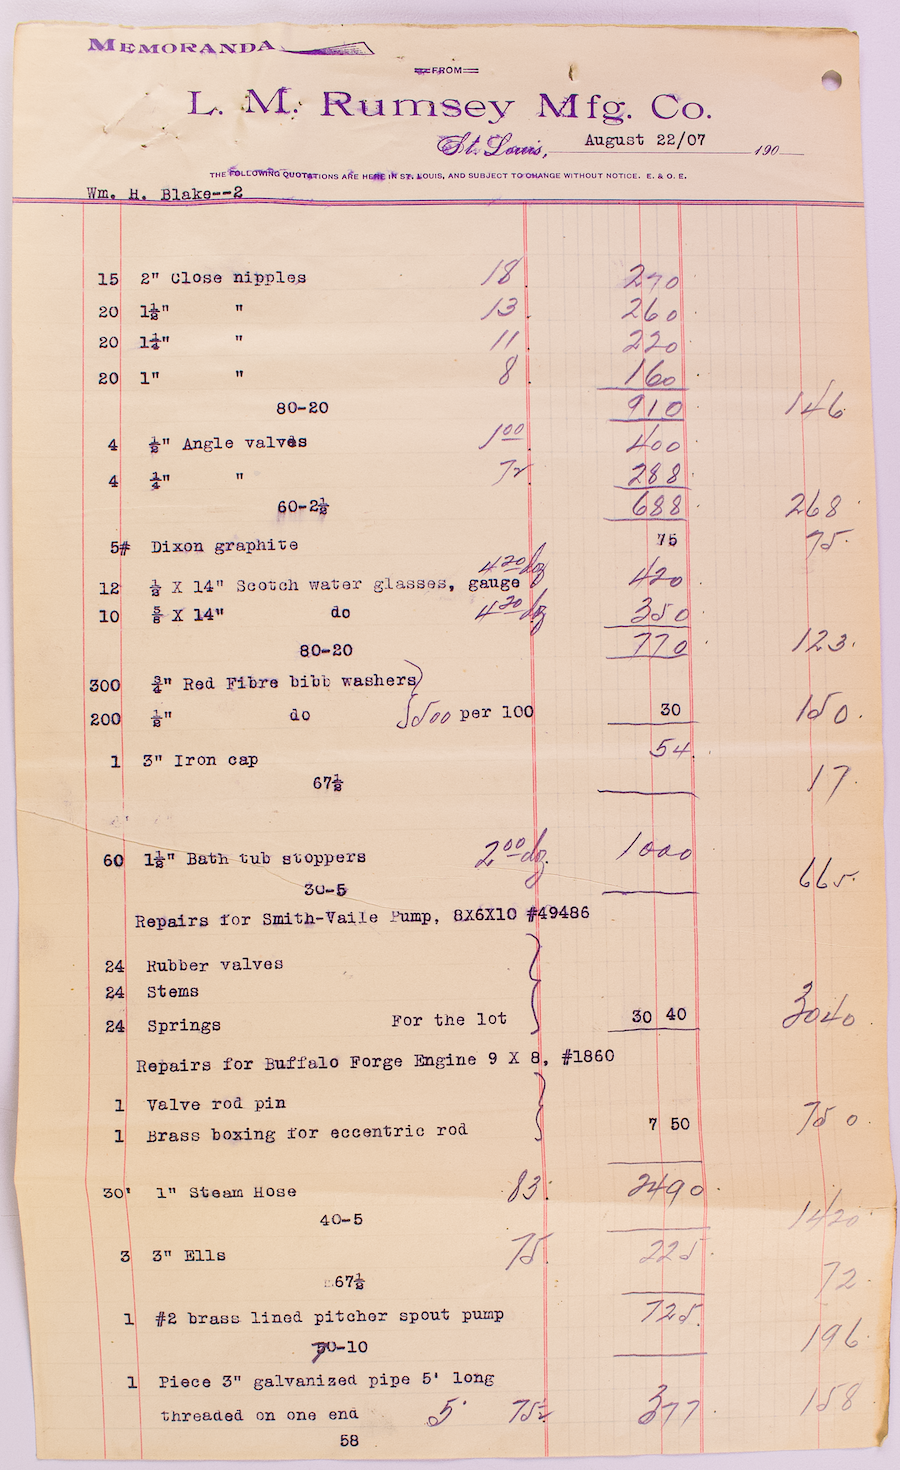 MEMORANDA
FROM
L. M. Rumsey Mfg. Co.
St. Louis, August 22/07 190
THE FOLLOWING QUOTATIONS ARE HERE IN ST. LOUIS, AND SUBJECT TO CHANGE WITHOUT NOTICE. E. & O. E.
Wm. H. Blake--2
15 2" Close nipples 18 270
20 1½" " 13 260
20 1¼" " 11 220
20 1" " 8 160
80-20 910 146
4 ½" Angle valves 1.00 400
4 ¼" " 72 288
60-2½ 688 268
5# Dixon graphite 75 75
4 20 dz
12 ½ X 14" Scotch water glasses, gauge 420
10 ⅝ X 14" do 4 20 dz 350
80-20 770 123
300 ¾" Red Fibre bibb washers
200 ½" do per 100 30 150
1 3" Iron cap 54
67½ 17
60 1½" Bath tub stoppers 2 00 dz 1000
30-5 665
Repairs for Smith-Vaile Pump, 8X6X10 #49486
24 Rubber valves
24 Stems
24 Springs For the lot 30 40 3040
Repairs for Buffalo Forge Engine 9 X 8, #1860
1 Valve rod pin
1 Brass boxing for eccentric rod 7 50 750
30' 1" Steam Hose 83 2490
40-5 1420
3 3" Ells 75 225
67½ 72
1 #2 brass lined pitcher spout pump 725
70-10 196
1 Piece 3" galvanized pipe 5' long
threaded on one end 5' 75½ 377 158
58